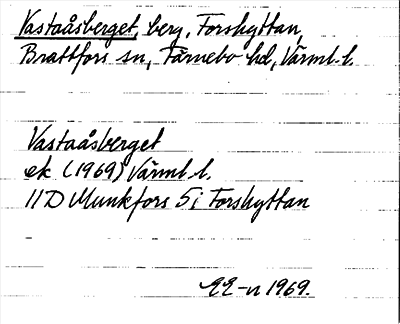 Vastaåsberget, berg, Forshyttan,
Brattfors sn, Färnebo hd, Värml. l.
Vastaåsberget
ek (1969) Värml. l.
11D Munkfors 5i Forshyttan
EE-n 1969.